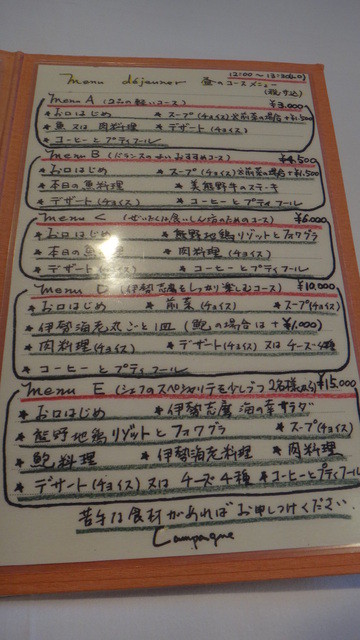 Menu déjeuner 昼のコースメニュー
12:00〜13:30(L.O)
(税サ込)
Menu A (2品の軽いコース) ¥3,000
★お口はじめ ★スープ(チョイス)※前菜の場合+¥1,500
★魚又は肉料理 ★デザート(チョイス)
★コーヒーとプティフール
Menu B (バランスのよいおすすめコース) ¥4,500
★お口はじめ ★スープ(チョイス)※前菜の場合+¥1,500
★本日の魚料理 ★美熊野牛のステーキ
★デザート(チョイス) ★コーヒーとプティフール
Menu C (ぜいたくな食いしん坊のためのコース) ¥6,000
★お口はじめ ★熊野地鶏リゾットとフォワグラ
★本日の魚料理 ★肉料理(チョイス)
★デザート(チョイス) ★コーヒーとプティフール
Menu D (伊勢志摩をしっかり楽しむコース) ¥10,000
★お口はじめ ★前菜(チョイス) ★スープ(チョイス)
★伊勢海老丸ごと1皿(鮑の場合は+¥1,000)
★肉料理(チョイス) ★デザート(チョイス)又はチーズ4種
★コーヒーとプティフール
Menu E (シェフのスペシャリテを少しづつ 2名様より) ¥15,000
★お口はじめ ★伊勢志摩海の幸サラダ
★熊野地鶏リゾットとフォワグラ ★スープ(チョイス)
★鮑料理 ★伊勢海老料理 ★肉料理
★デザート(チョイス)又はチーズ4種 ★コーヒーとプティフール
苦手な食材があればお申しつけください
Campagne